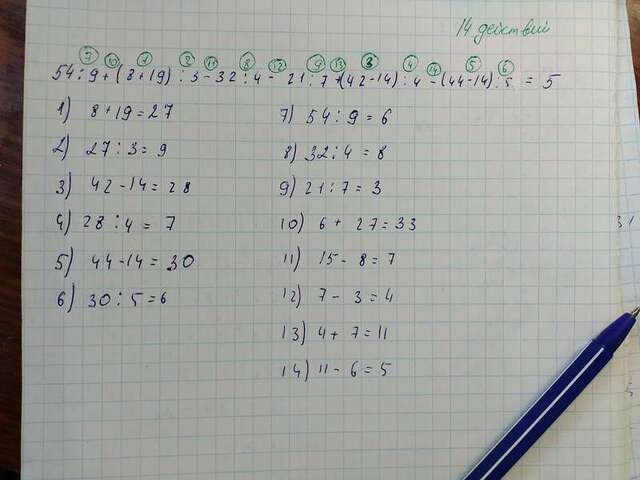 14 действий
7 10 1 2 11 8 12 9 13 3 4 14 5 6
54 : 9 + (8 + 19) : 3 - 32 : 4 - 21 : 7 + (42 - 14) : 4 - (44 - 14) : 5 = 5
1) 8 + 19 = 27
2) 27 : 3 = 9
3) 42 - 14 = 28
4) 28 : 4 = 7
5) 44 - 14 = 30
6) 30 : 5 = 6
7) 54 : 9 = 6
8) 32 : 4 = 8
9) 21 : 7 = 3
10) 6 + 27 = 33
11) 15 - 8 = 7
12) 7 - 3 = 4
13) 4 + 7 = 11
14) 11 - 6 = 5